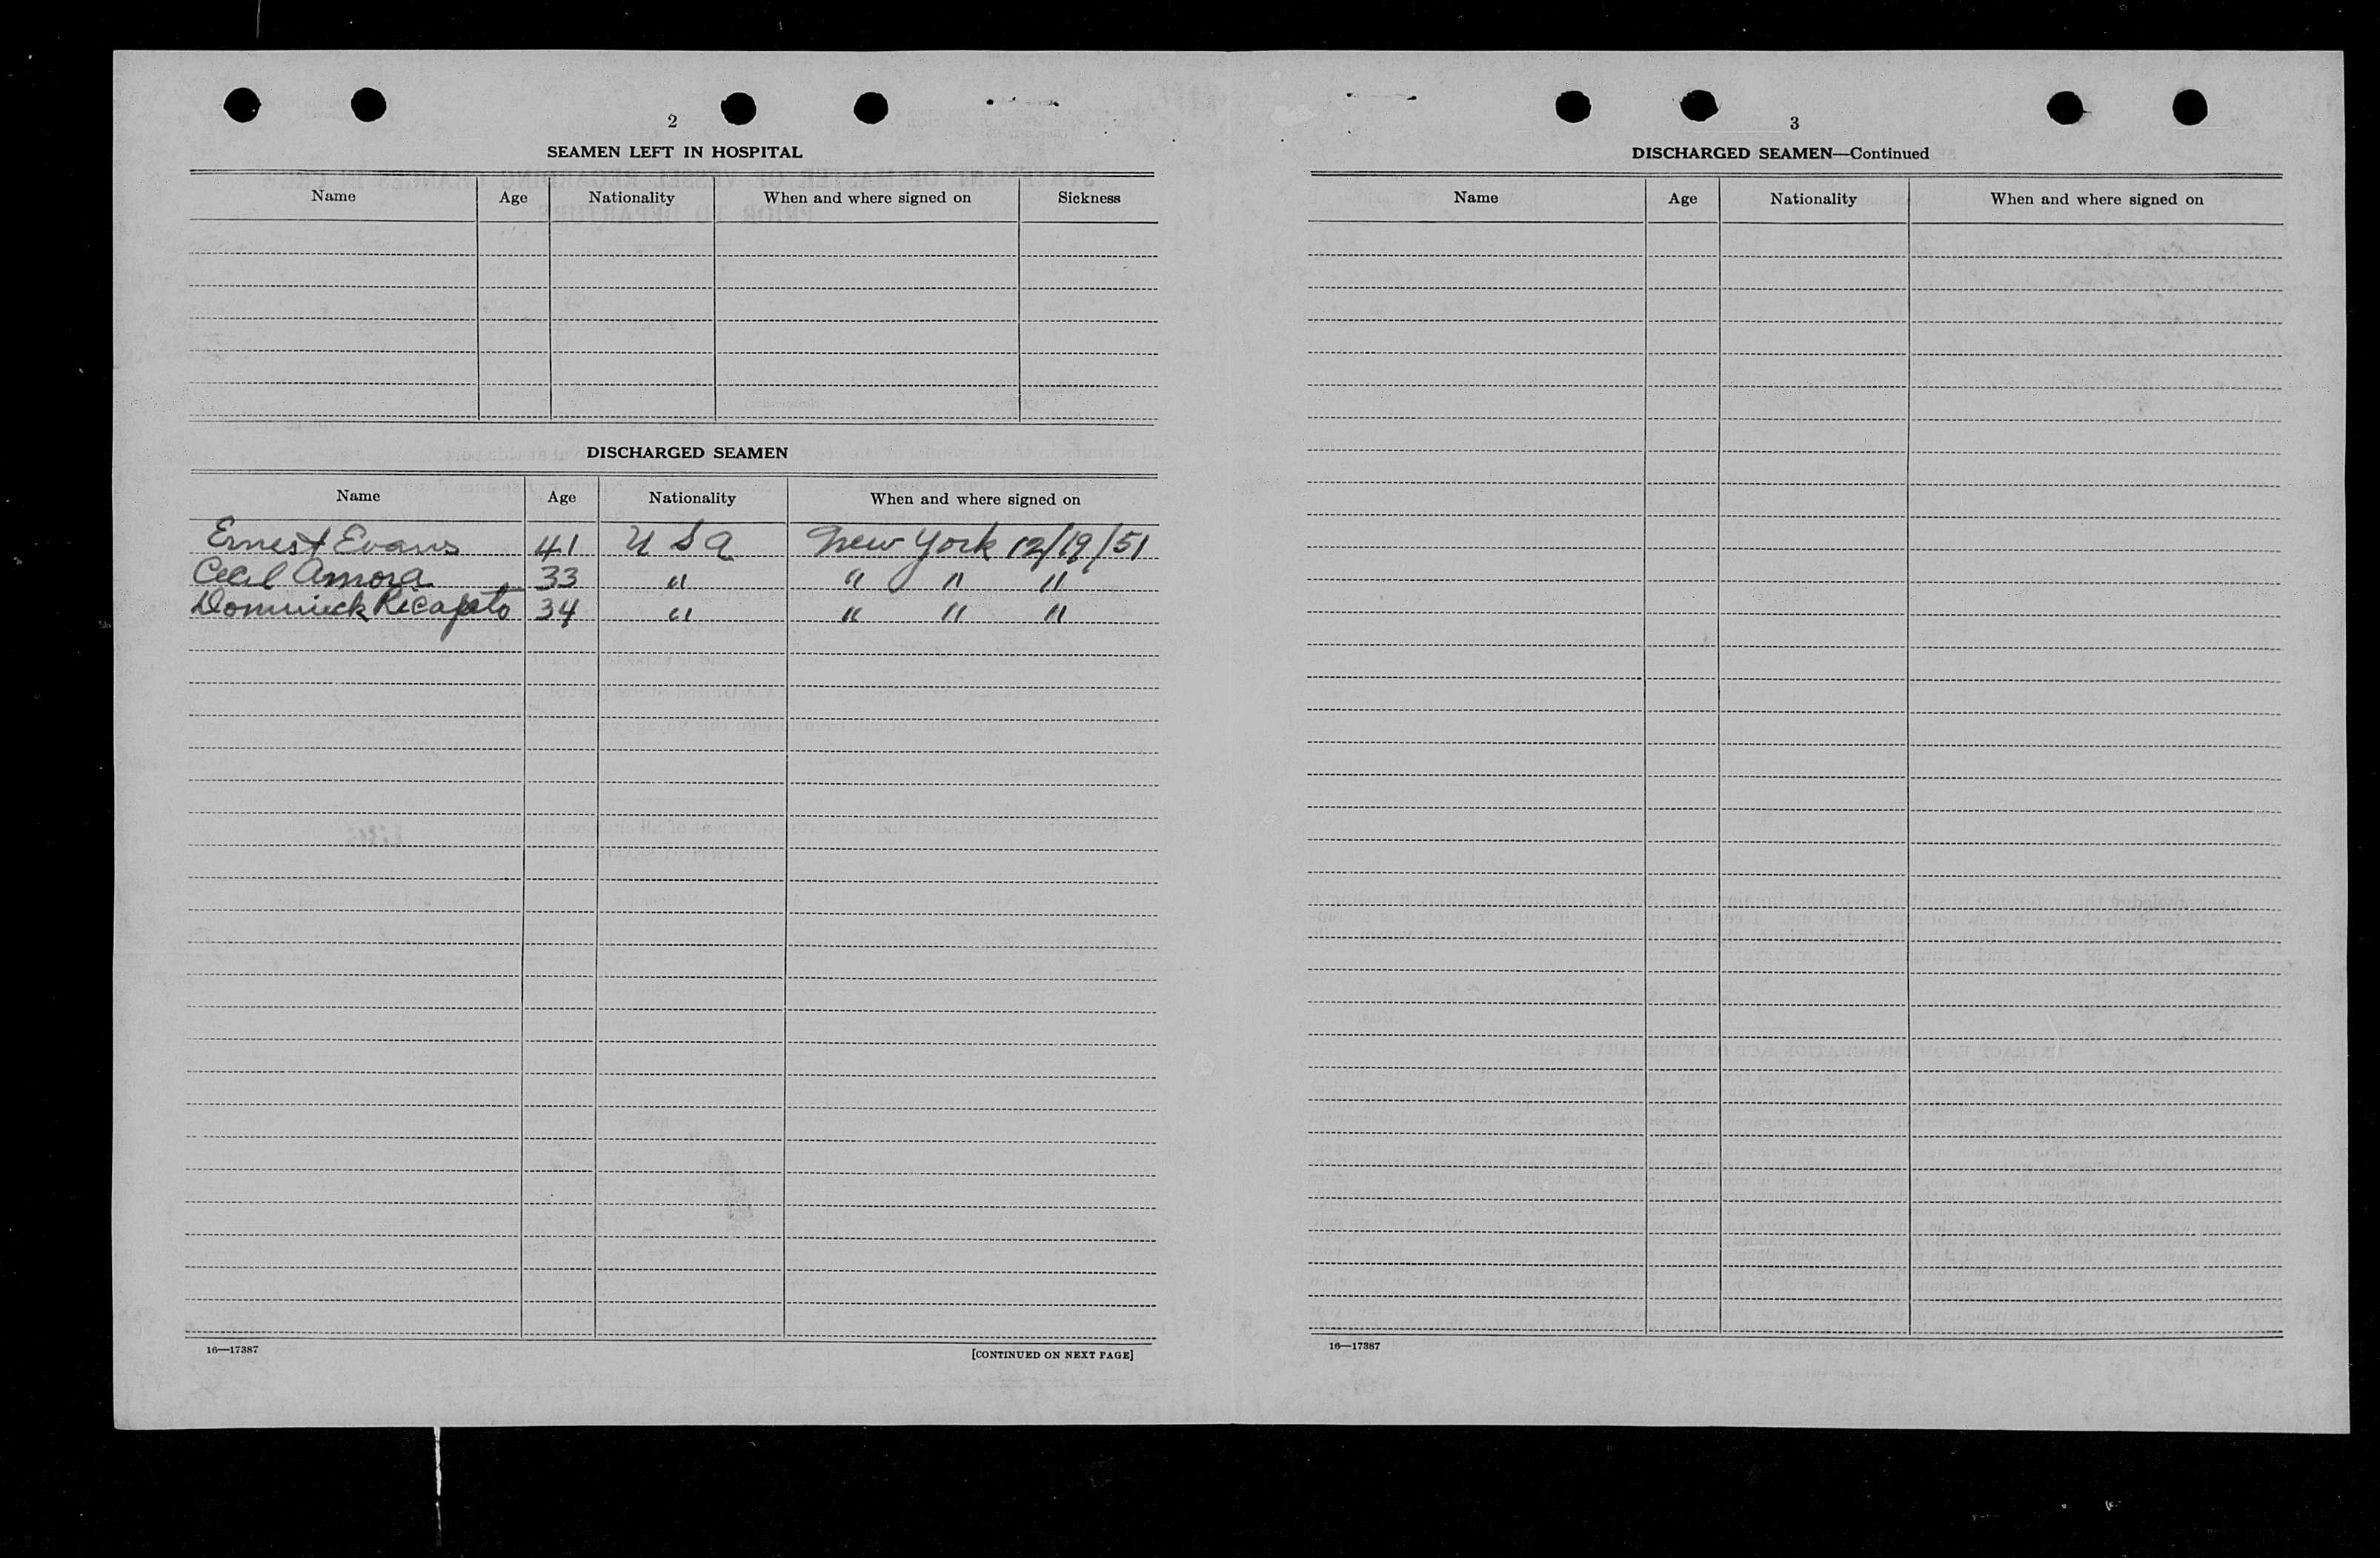 2
SEAMEN LEFT IN HOSPITAL
Name Age Nationality When and where signed on Sickness
DISCHARGED SEAMEN
Name Age Nationality When and where signed on
Ernest Evans 41 U S A New York 12/19/51
Cecil Amora 33 " " " "
Dominick Ricapito 34 " " " "
16—17387 [CONTINUED ON NEXT PAGE]
3
DISCHARGED SEAMEN—Continued
Name Age Nationality When and where signed on
16—17387